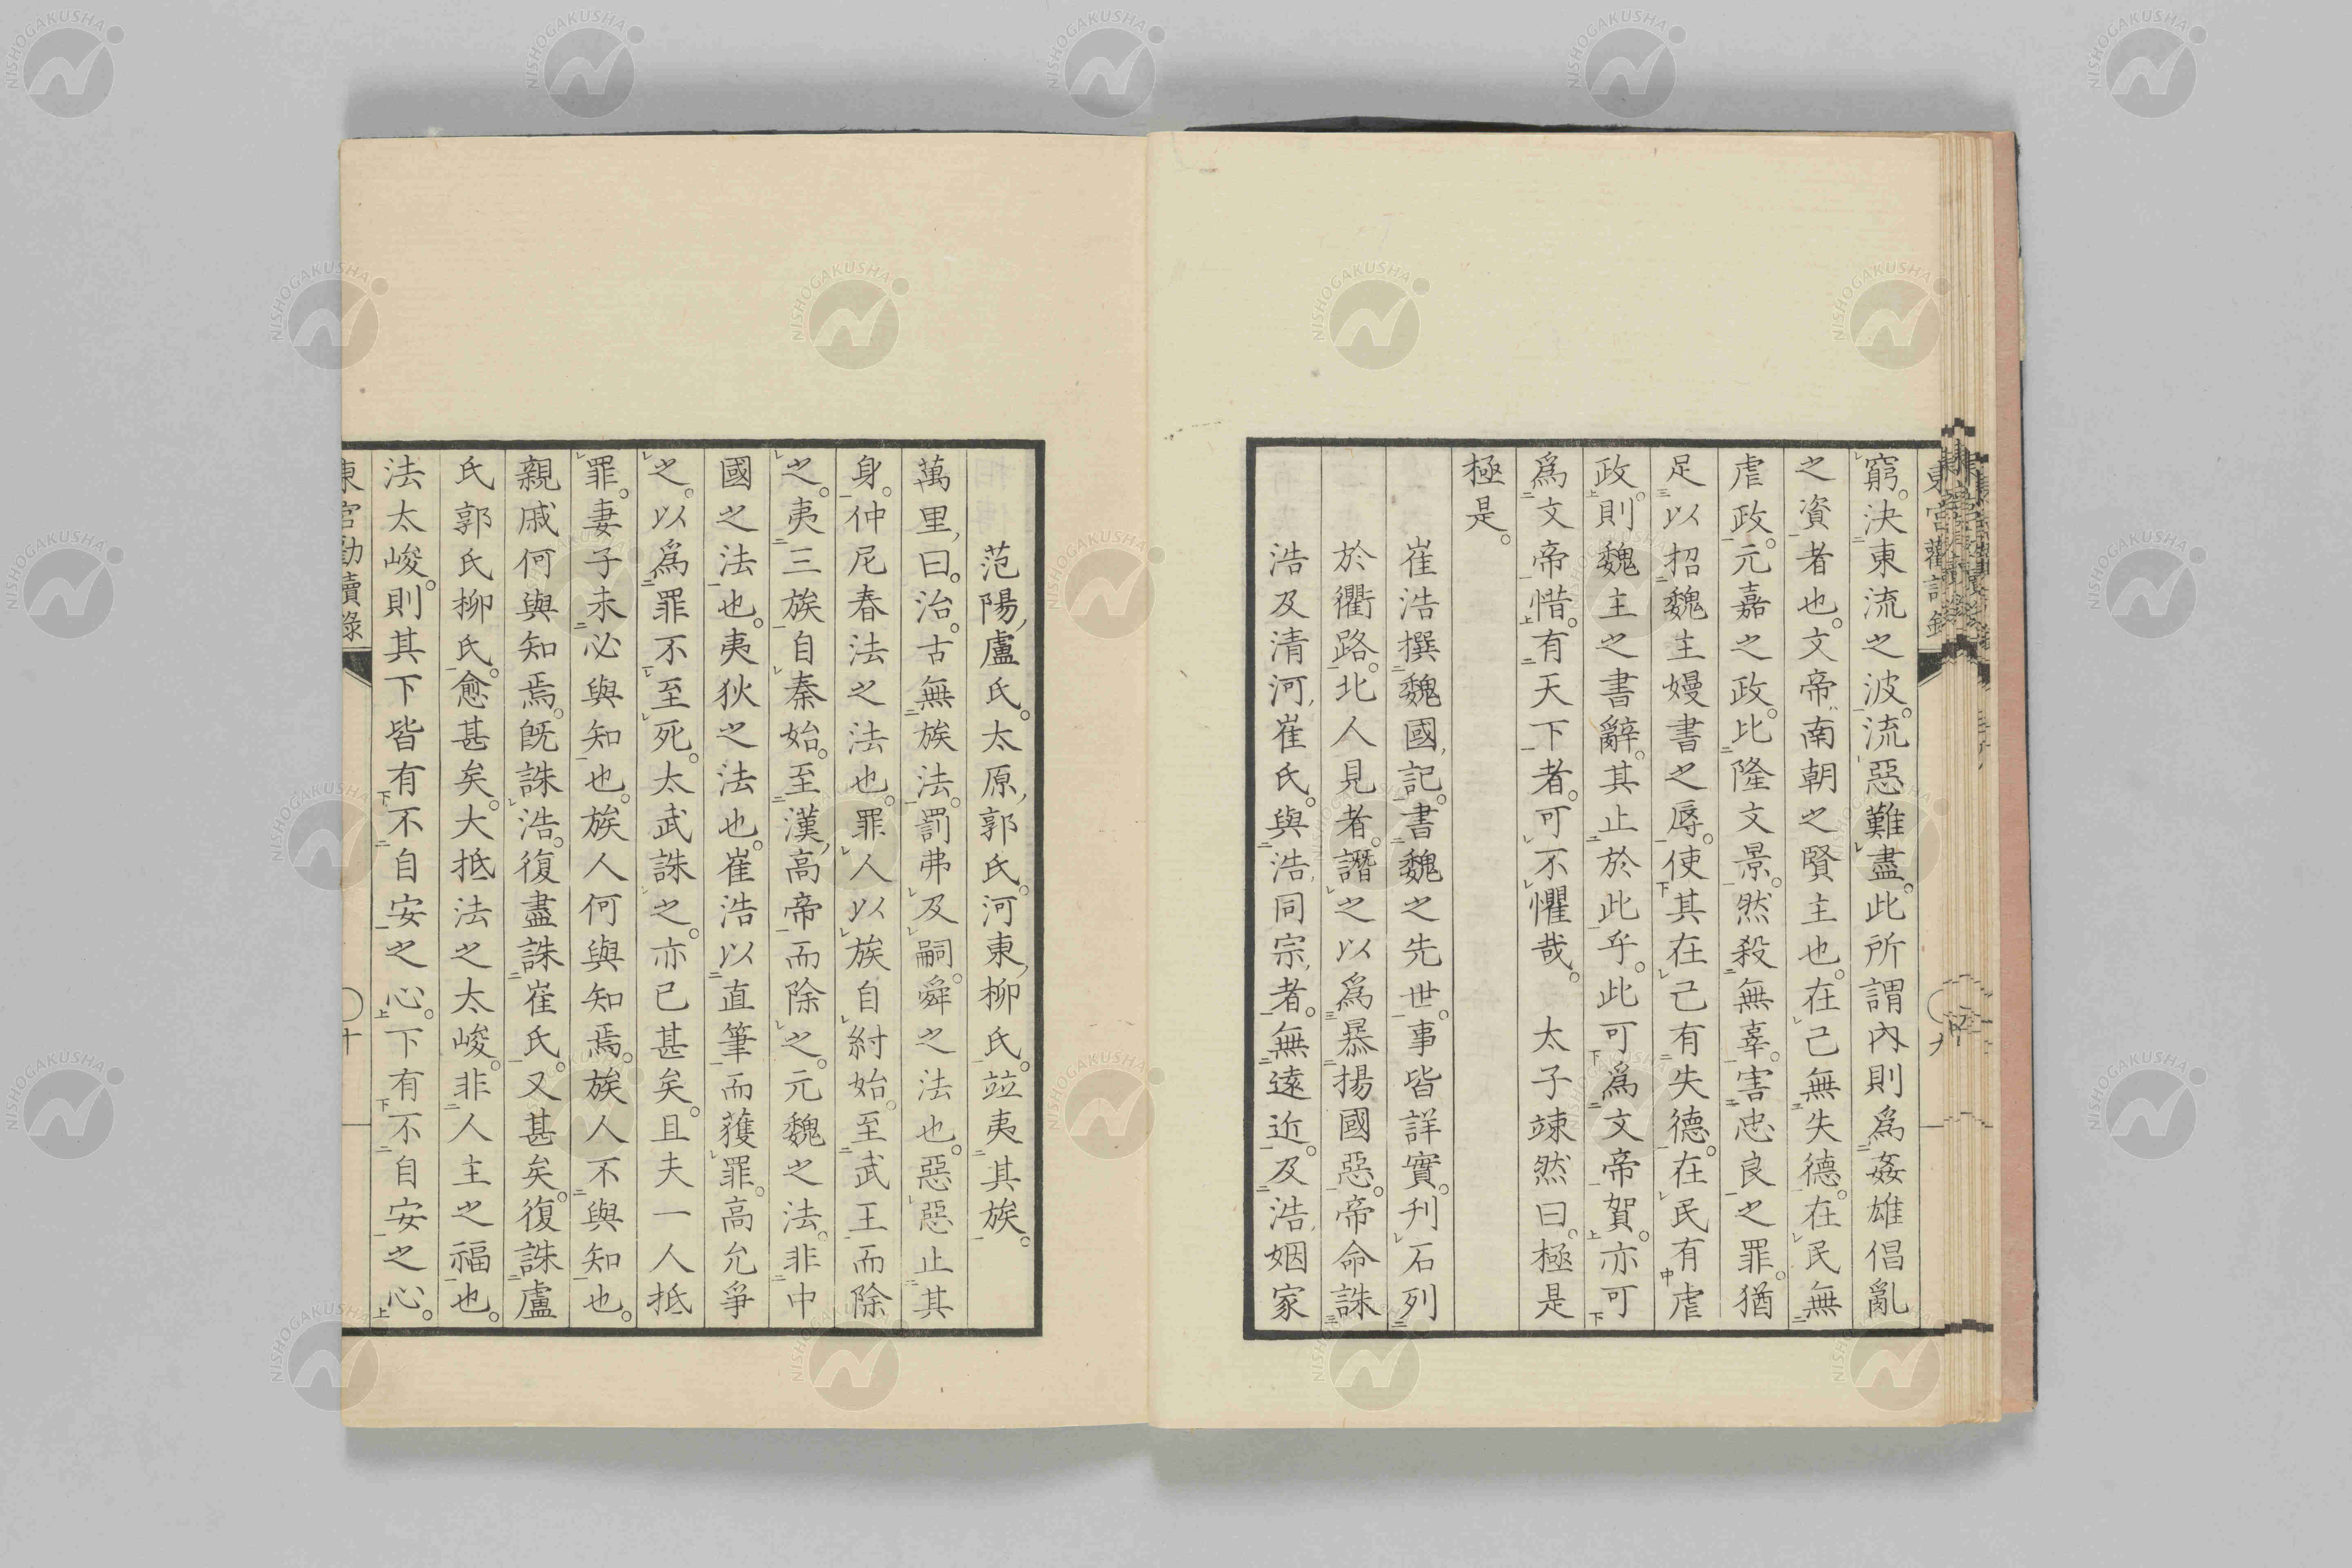 窮。決東流之波。流惡難盡。此所謂內則爲姦雄倡亂
之資者也。文帝南朝之賢主也。在己無失德。在民無
虐政。元嘉之政。比隆文景。然殺無辜。害忠良之罪。猶
足以招魏主嫚書之辱。使其在己有失德。在民有虐
政。則魏主之書辭。其止於此乎。此可爲文帝賀。亦可
爲文帝惜。有天下者。可不懼哉。 太子竦然曰。極是
極是。
崔浩撰魏國記。書魏之先世。事皆詳實。刋石列
於衢路。北人見者。譖之以爲暴揚國惡。帝命誅
浩及清河崔氏。與浩同宗者。無遠近。及浩姻家
范陽盧氏。太原郭氏。河東柳氏。竝夷其族。
萬里曰。治。古無族法。罰弗及嗣。舜之法也。惡惡止其
身。仲尼春法之法也。罪人以族自紂始。至武王而除
之。夷三族自秦始。至漢高帝而除之。元魏之法。非中
國之法也。夷狄之法也。崔浩以直筆而獲罪。高允爭
之。以爲罪不至死。太武誅之。亦已甚矣。且夫一人抵
罪。妻子未必與知也。族人何與知焉。族人不與知也。
親戚何與知焉。既誅浩。復盡誅崔氏。又甚矣。復誅盧
氏郭氏柳氏。愈甚矣。大抵法之太峻。非人主之福也。
法太峻。則其下皆有不自安之心。下有不自安之心。
東宮勸讀錄
十